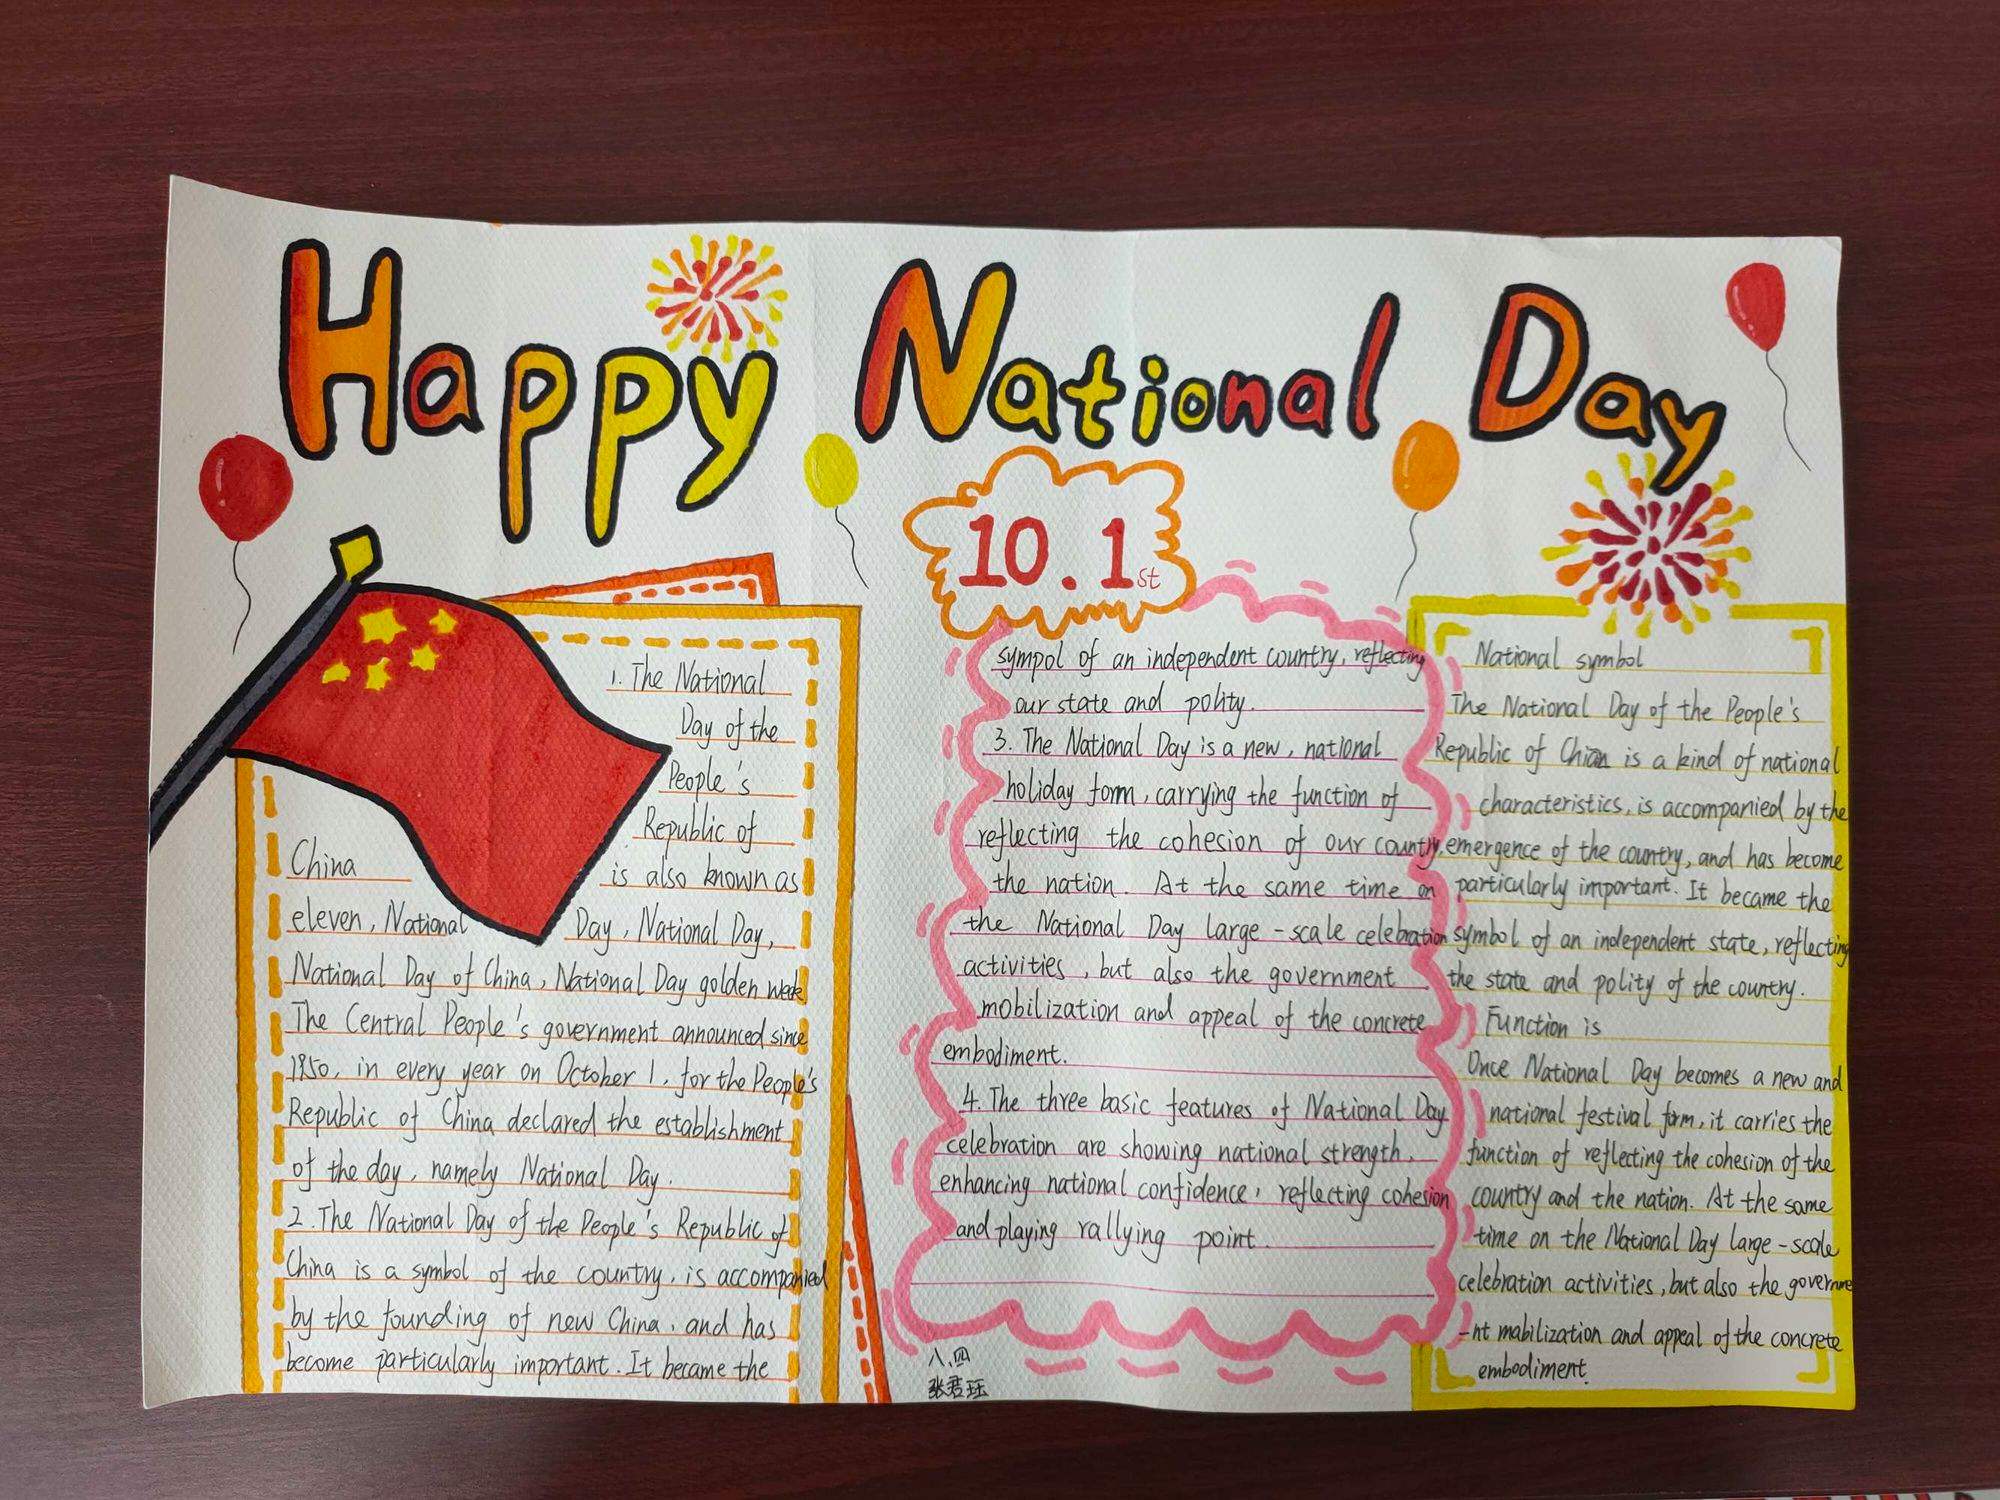 Happy National Day
10.1st
1. The National
Day of the
People's
Republic of
China is also known as
eleven, National Day, National Day,
National Day of China, National Day golden week
The Central People's government announced since
1950, in every year on October 1, for the People's
Republic of China declared the establishment
of the day, namely National Day.
2. The National Day of the People's Republic of
China is a symbol of the country, is accompanied
by the founding of new China, and has
become particularly important. It became the
sympol of an independent country, reflecting
our state and polity.
3. The National Day is a new, national
holiday form, carrying the function of
reflecting the cohesion of our country,
the nation. At the same time on
the National Day large-scale celebration
activities, but also the government
mobilization and appeal of the concrete
embodiment.
4. The three basic features of National Day
celebration are showing national strength,
enhancing national confidence, reflecting cohesion
and playing rallying point.
八、四
National symbol
The National Day of the People's
Republic of is a kind of national
characteristics, is accompanied by the
emergence of the country, and has become
particularly important. It became the
symbol of an independent state, reflecting
the state and polity of the country.
Function is
Once National Day becomes a new and
national festival form, it carries the
function of reflecting the cohesion of the
country and the nation. At the same
time on the National Day large-scale
celebration activities, but also the governme
-nt mabilization and appeal of the concrete
embodiment.